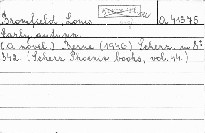 Bromfield, Louis A 41376
Early autumn.
(A novel.) Berne (1946) Scherz. m 8°
342. (Scherz Phoenix books, vol. 44.)